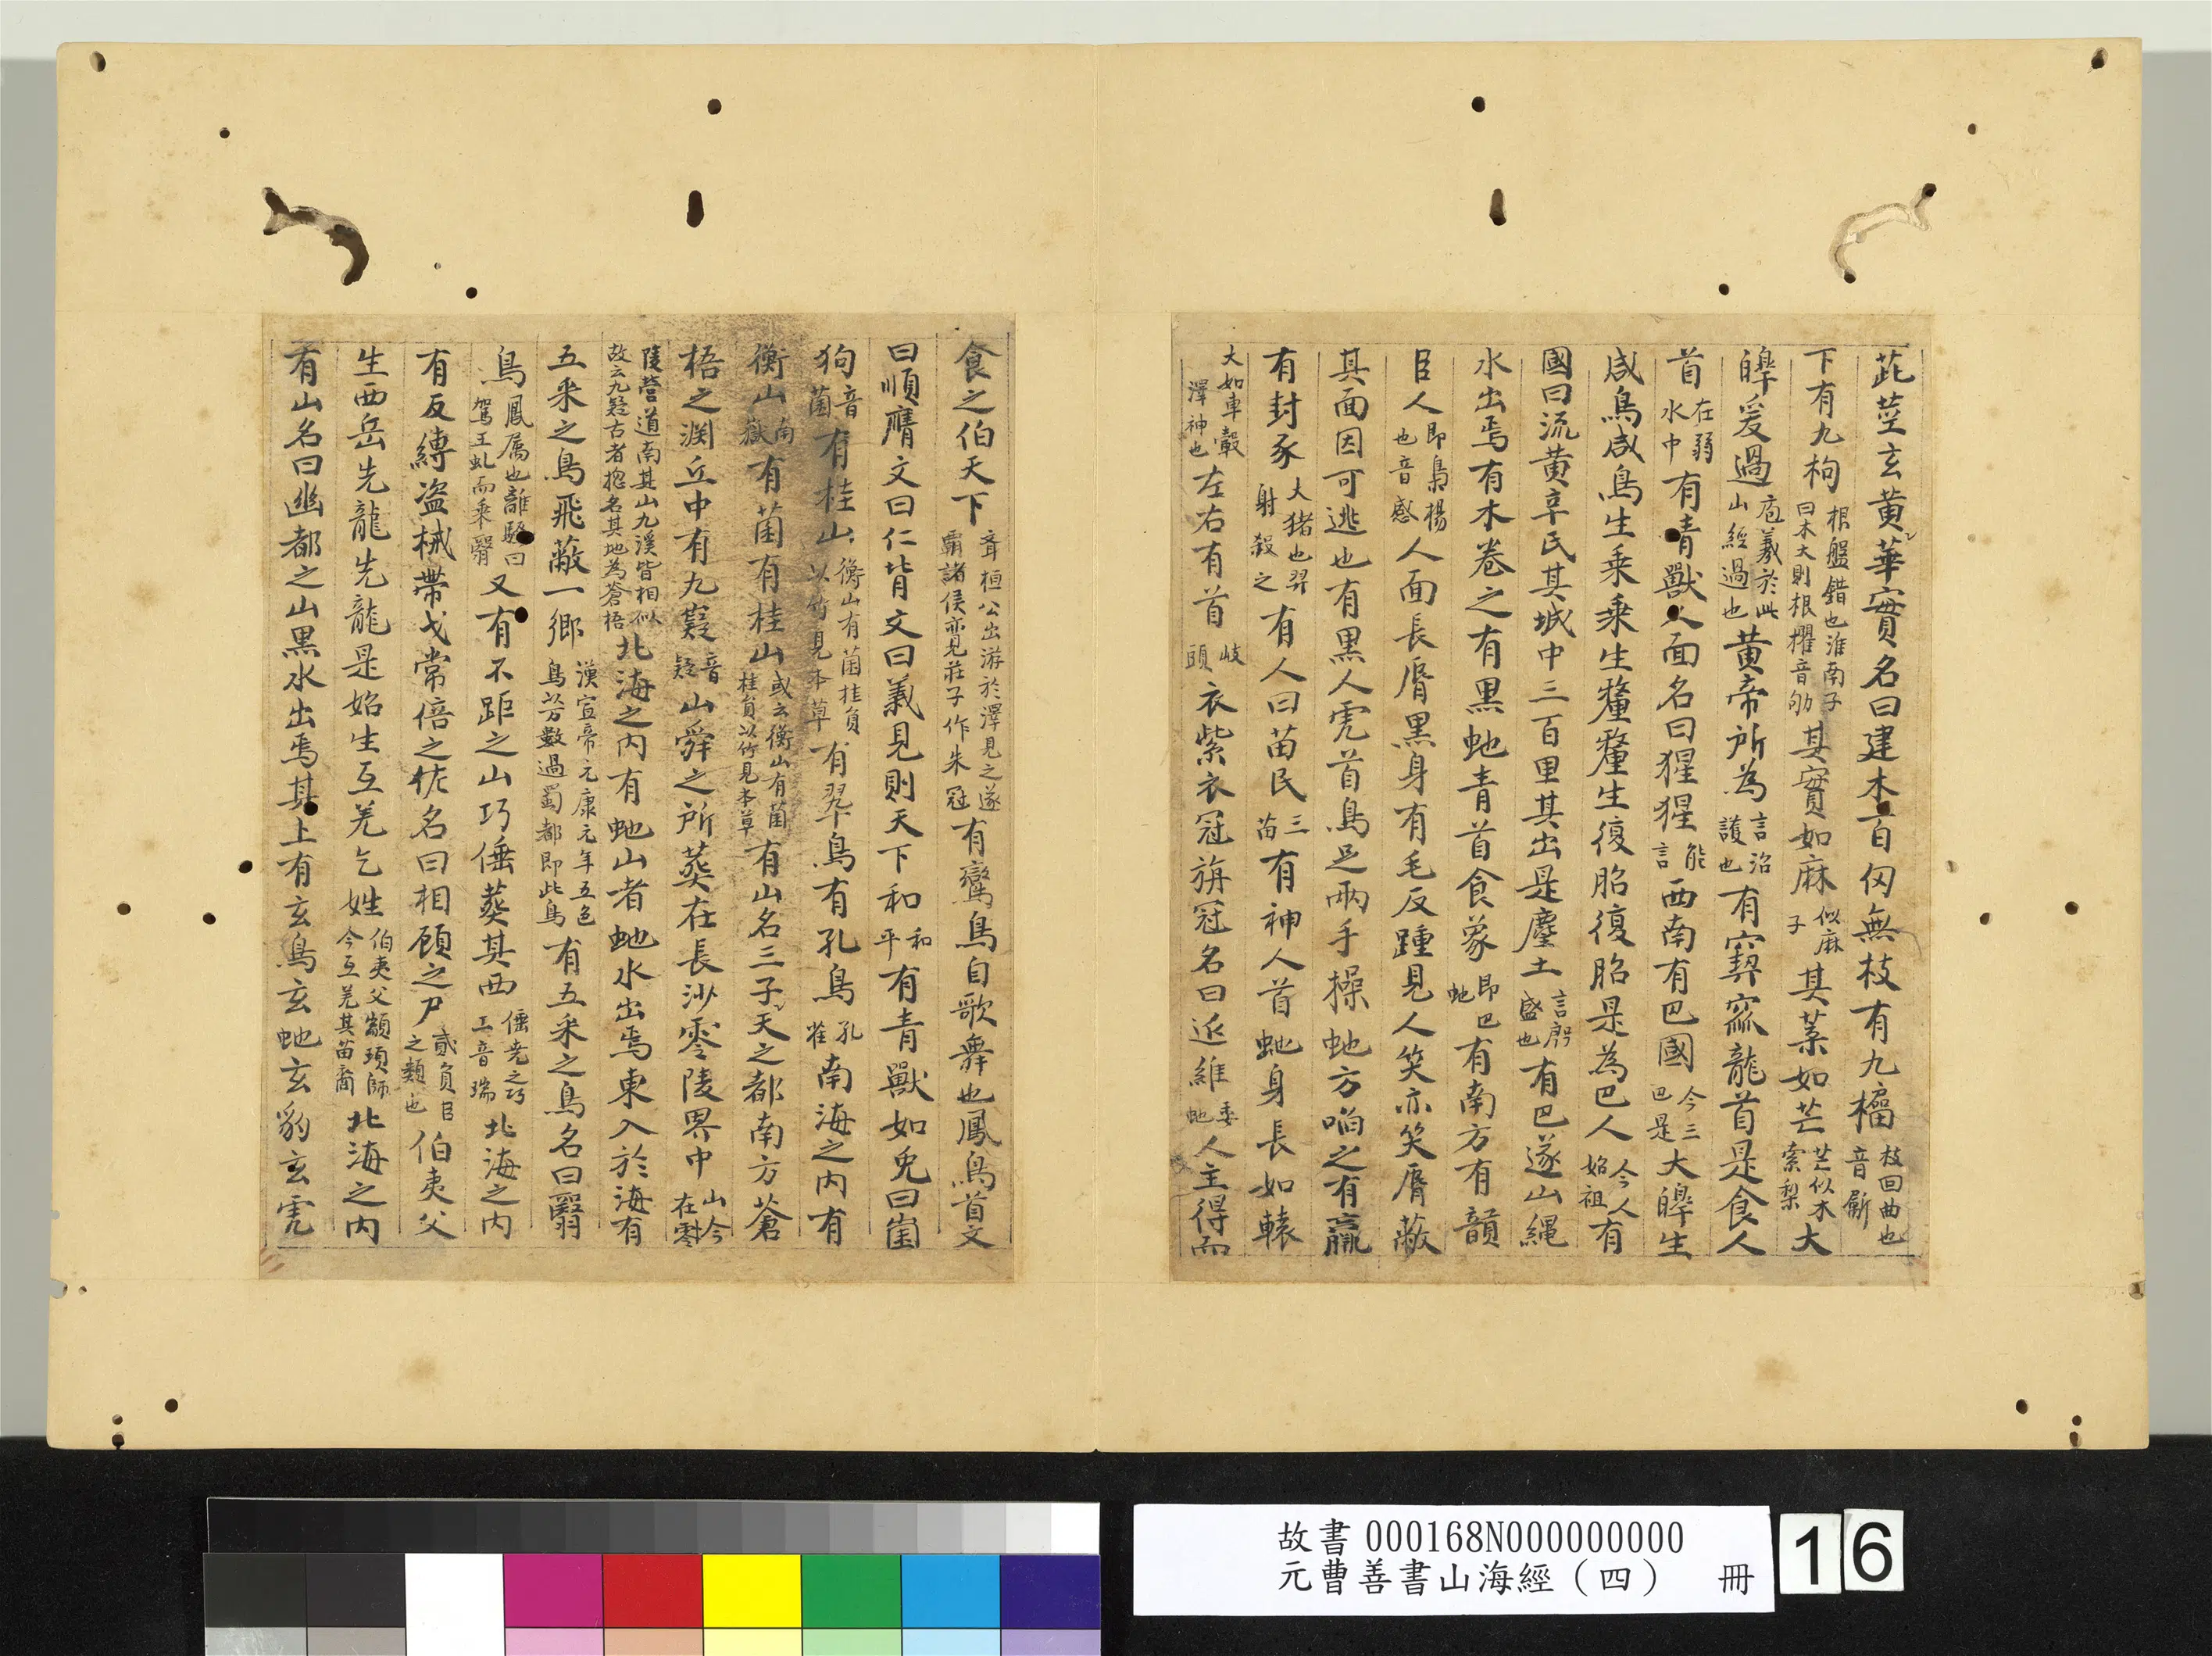 茈莖玄黃華實名曰建木百仞無枝有九欘枝回曲也音斸
下有九枸根盤錯也淮南子曰木大則根欋音劬其實如麻似麻子其葉如芒芒似木索梨大
皞爰過庖羲於此山經過也黃帝所為言治護也有窫窳龍首是食人
首在弱水中有青獸人面名曰猩猩能言西南有巴國今三巴是大皞生
咸鳥咸鳥生乘乘生釐釐生復昭復昭是為巴人今人始祖有
國曰流黃辛氏其域中三百里其出是塵土言殷盛也有巴遂山繩
水出焉有木卷之有黑虵青首食象即巴虵有南方有贛
臣人即梟楊也音感人面長脣黑身有毛反踵見人笑亦笑脣蔽
其面因可逃也有黑人虎首鳥足兩手操虵方啗之有贏
有封豕大猪也羿射殺之有人曰苗民三苗有神人首虵身長如轅
大如車轂澤神也左右有首岐頭衣紫衣冠旃冠名曰延維委虵人主得而
食之伯天下齊桓公出游於澤見之遂霸諸侯亦見莊子作朱冠有鸞鳥自歌舞也鳳鳥首文
曰順膺文曰仁背文曰義見則天下和和平有青獸如兔曰㟴
狗音菌有桂山衡山有菌桂員以竹見本草有翠鳥有孔鳥孔雀南海之內有
衡山南嶽有菌有桂山或云衡山有菌桂員以竹見本草有山名三子天之都南方蒼
梧之淵丘中有九嶷音疑山舜之所葬在長沙零陵界中山今在零
陵營道南其山九溪皆相似故云九疑古者揔名其地為蒼梧北海之內有虵山者虵水出焉東入於海有
五采之鳥飛蔽一鄉漢宣帝元康元年五色鳥以萬數過蜀都即此鳥有五采之鳥名曰翳
鳥鳳属也離騷曰駕玉虬而乘翳又有不距之山巧倕葬其西倕堯之巧工音瑞北海之內
有反縛盜械帶戈常倍之佐名曰相顧之尸貳負臣之類也伯夷父
生西岳先龍先龍是始生互羌乞姓伯夷父顓頊師今互羌其苗裔北海之內
有山名曰幽都之山黑水出焉其上有玄鳥玄虵玄豹玄虎
故書000168N000000000
元曹善書山海經（四） 冊
16